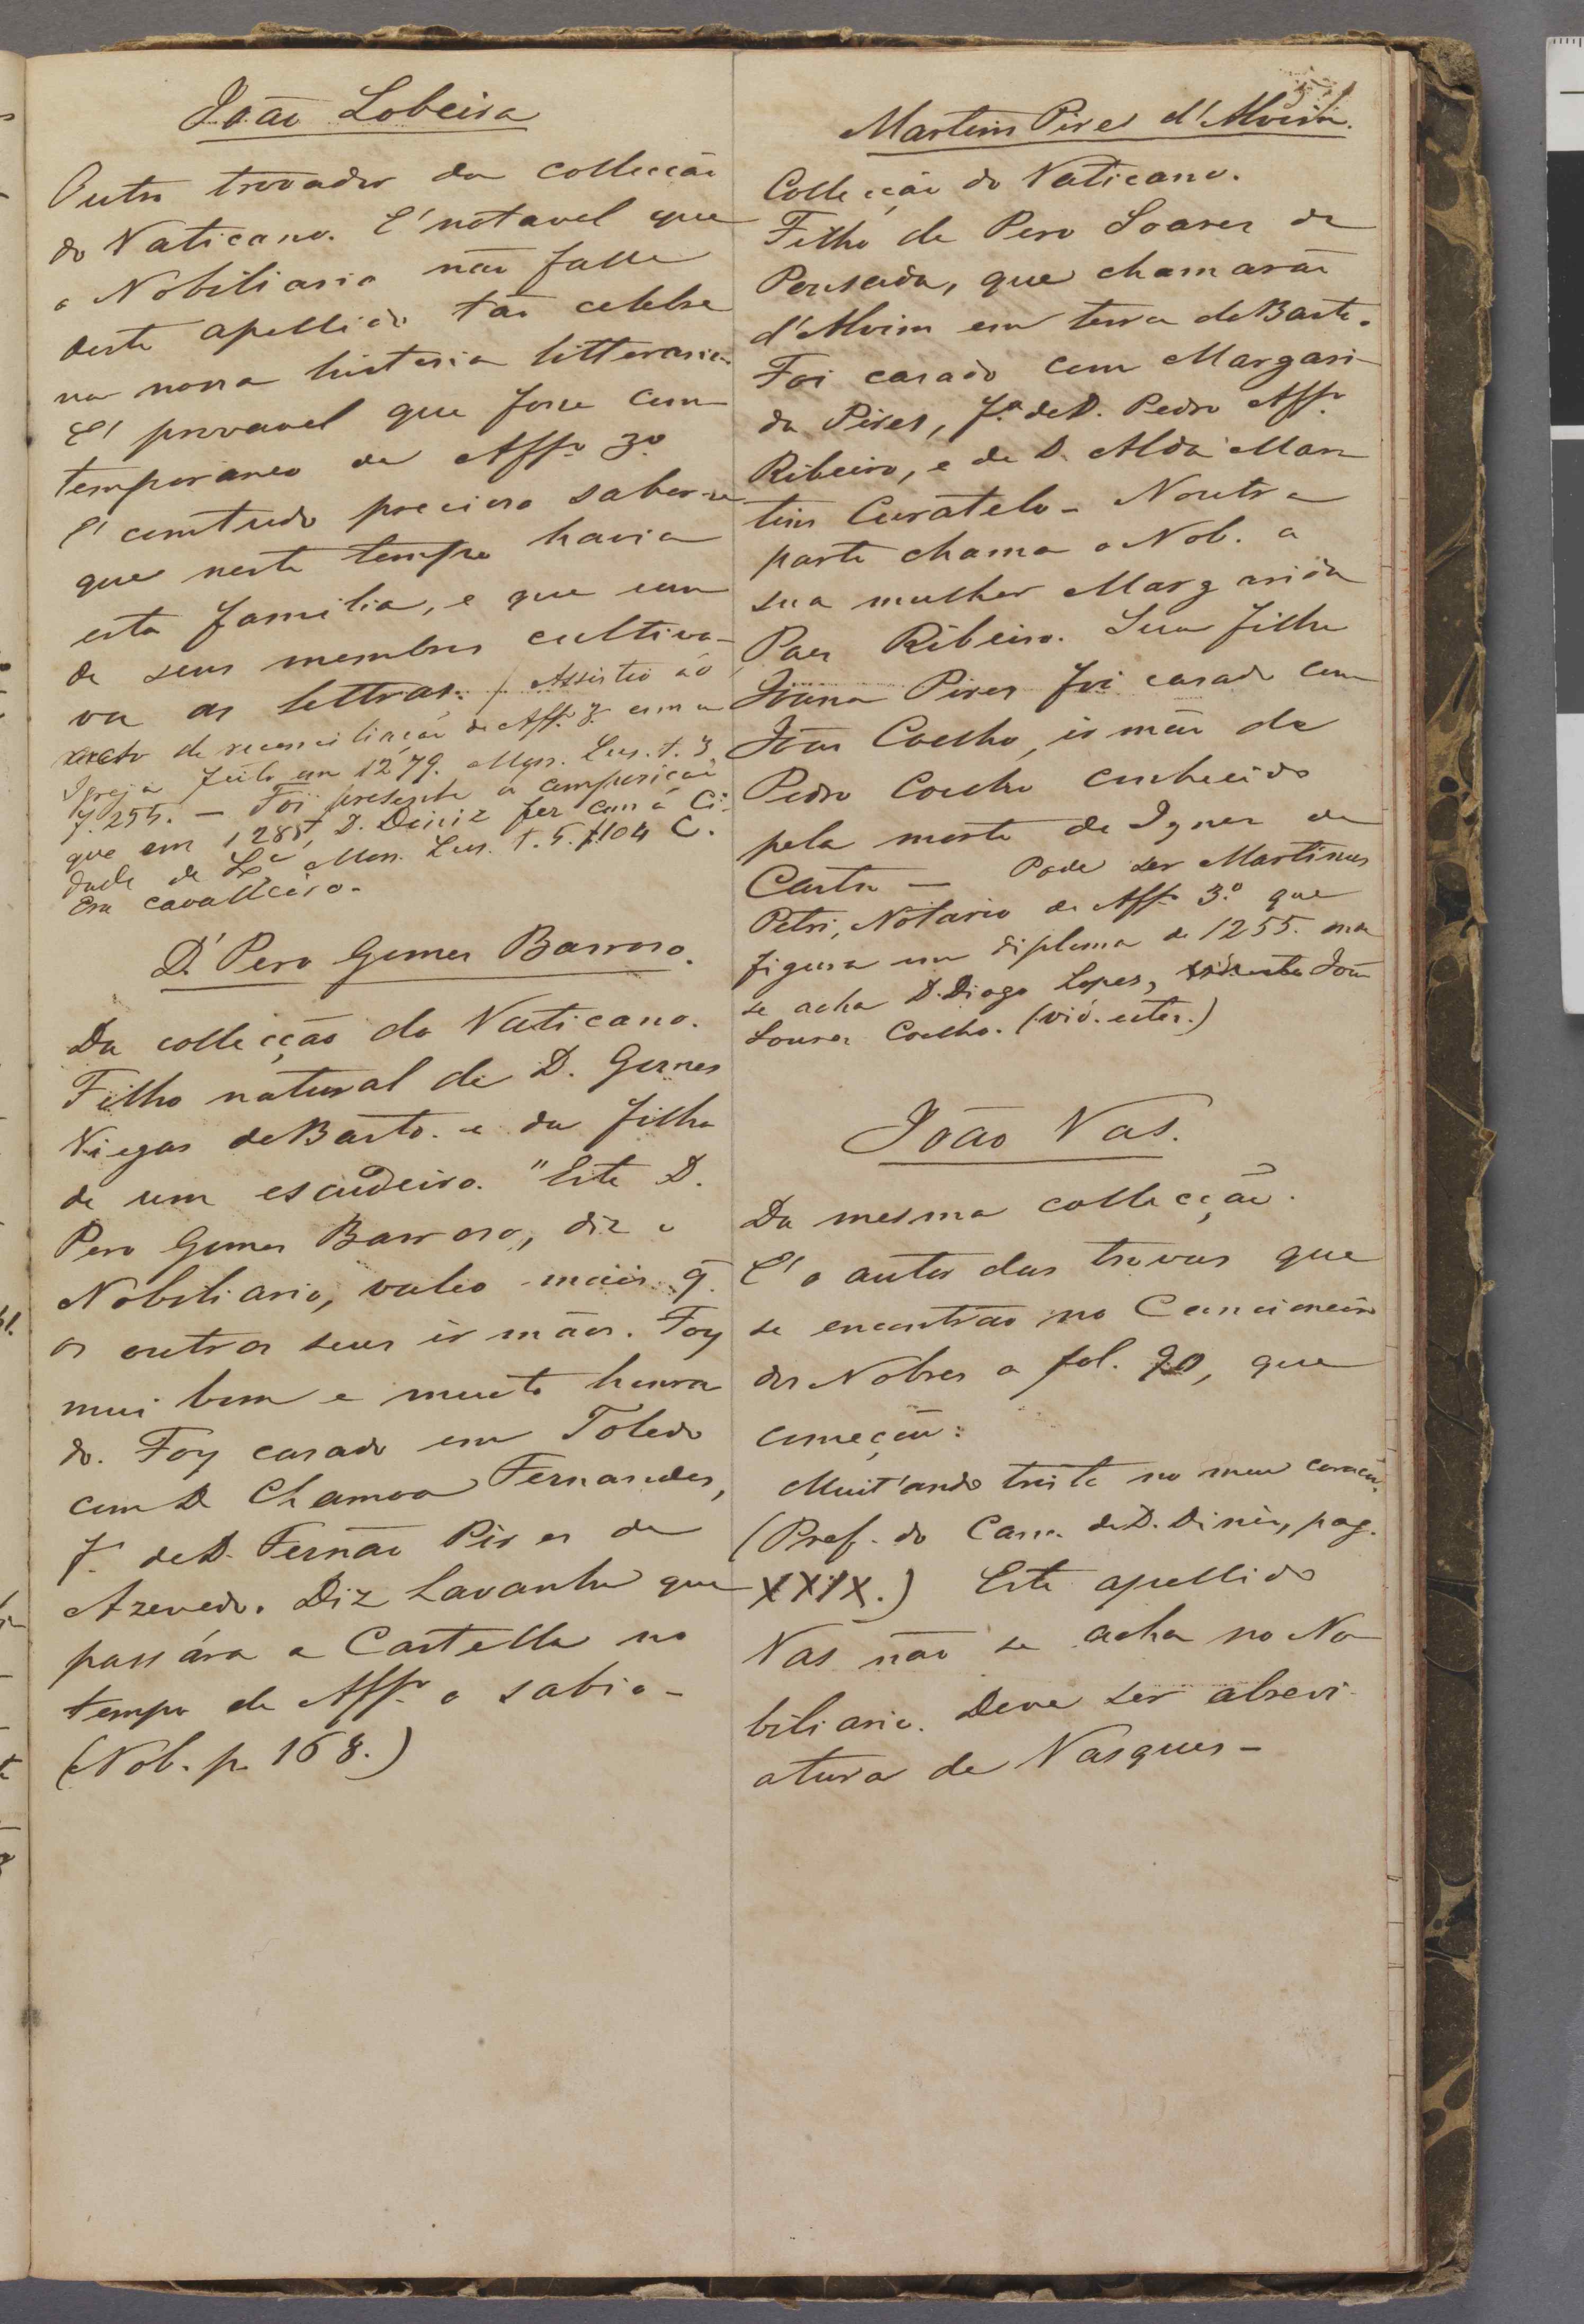 João Lobeira
Outro trovador da collecção
do Vaticano. E' notavel que
o Nobiliario não falle
deste apellido tão celebre
na nossa historia litteraria.
E' provavel que fosse con-
temporaneo de Aff.º 3.º
E' comtudo precioso saber-se
que neste tempo havia
esta familia, e que um
de seus membros cultiva-
va as lettras. / Assistio ao
acto de reconciliação de Aff.º 3.º com a
Igreja feito em 1279. Mon. Lus. t. 5
f. 255. — Foi presente á composição
que em 1285, D. Diniz fez com a Ci-
dade de Lx.ª Mon. Lus. t. 5. f. 104 C.
Era cavalleiro.
D. Pero Gomes Barroso.
Da collecção do Vaticano.
Filho natural de D. Gomes
Viegas de Basto. e da filha
de um escudeiro. "Este D.
Pero Gomes Barroso, diz o
Nobiliario, valeo mais q̃
os outros seus irmãos. Foy
mui bom e muito honra
do. Foy casado em Toledo
com D Chamoa Fernandes,
f. de D. Fernão Pires de
Azevedo. Diz Lavanha que
passára a Castella no
tempo de Aff.º o sabio -
(Nob. p. 168.)
Martim Pires d'Alvim.
Collecção do Vaticano.
Filho de Pero Soares de
Pousada, que chamarão
d'Alvim em terra de Basto.
Foi casado com Margari-
da Pires, f.ª de D. Pedro Aff.º
Ribeiro, e de D. Alda Mar
tim Curatelo - Noutra
parte chama o Nob. a
sua mulher Margarida
Paes Ribeiro. Sua filha
Joana Pires foi casada com
João Coelho, irmão de
Pedro Coelho conhecido
pela morte de Ignes de
Castro — Pode ser Martinus
Petri, Notario de Aff.º 3.º que
figura em diploma de 1255. onde
se acha D. Diogo Lopes, João
Soures Coelho. (vid. estes.)
João Vas.
Da mesma collecção.
E' o autor das trovas que
se encontrão no Cancioneiro
dos Nobres a fol. 90, que
começão:
Muit'ando triste no meu coração.
(Pref. do Canc. de D. Diniz, pag.
XXIX.) Este apellido
Vas não se acha no No
biliario. Deve ser abrevi-
atura de Vasques -